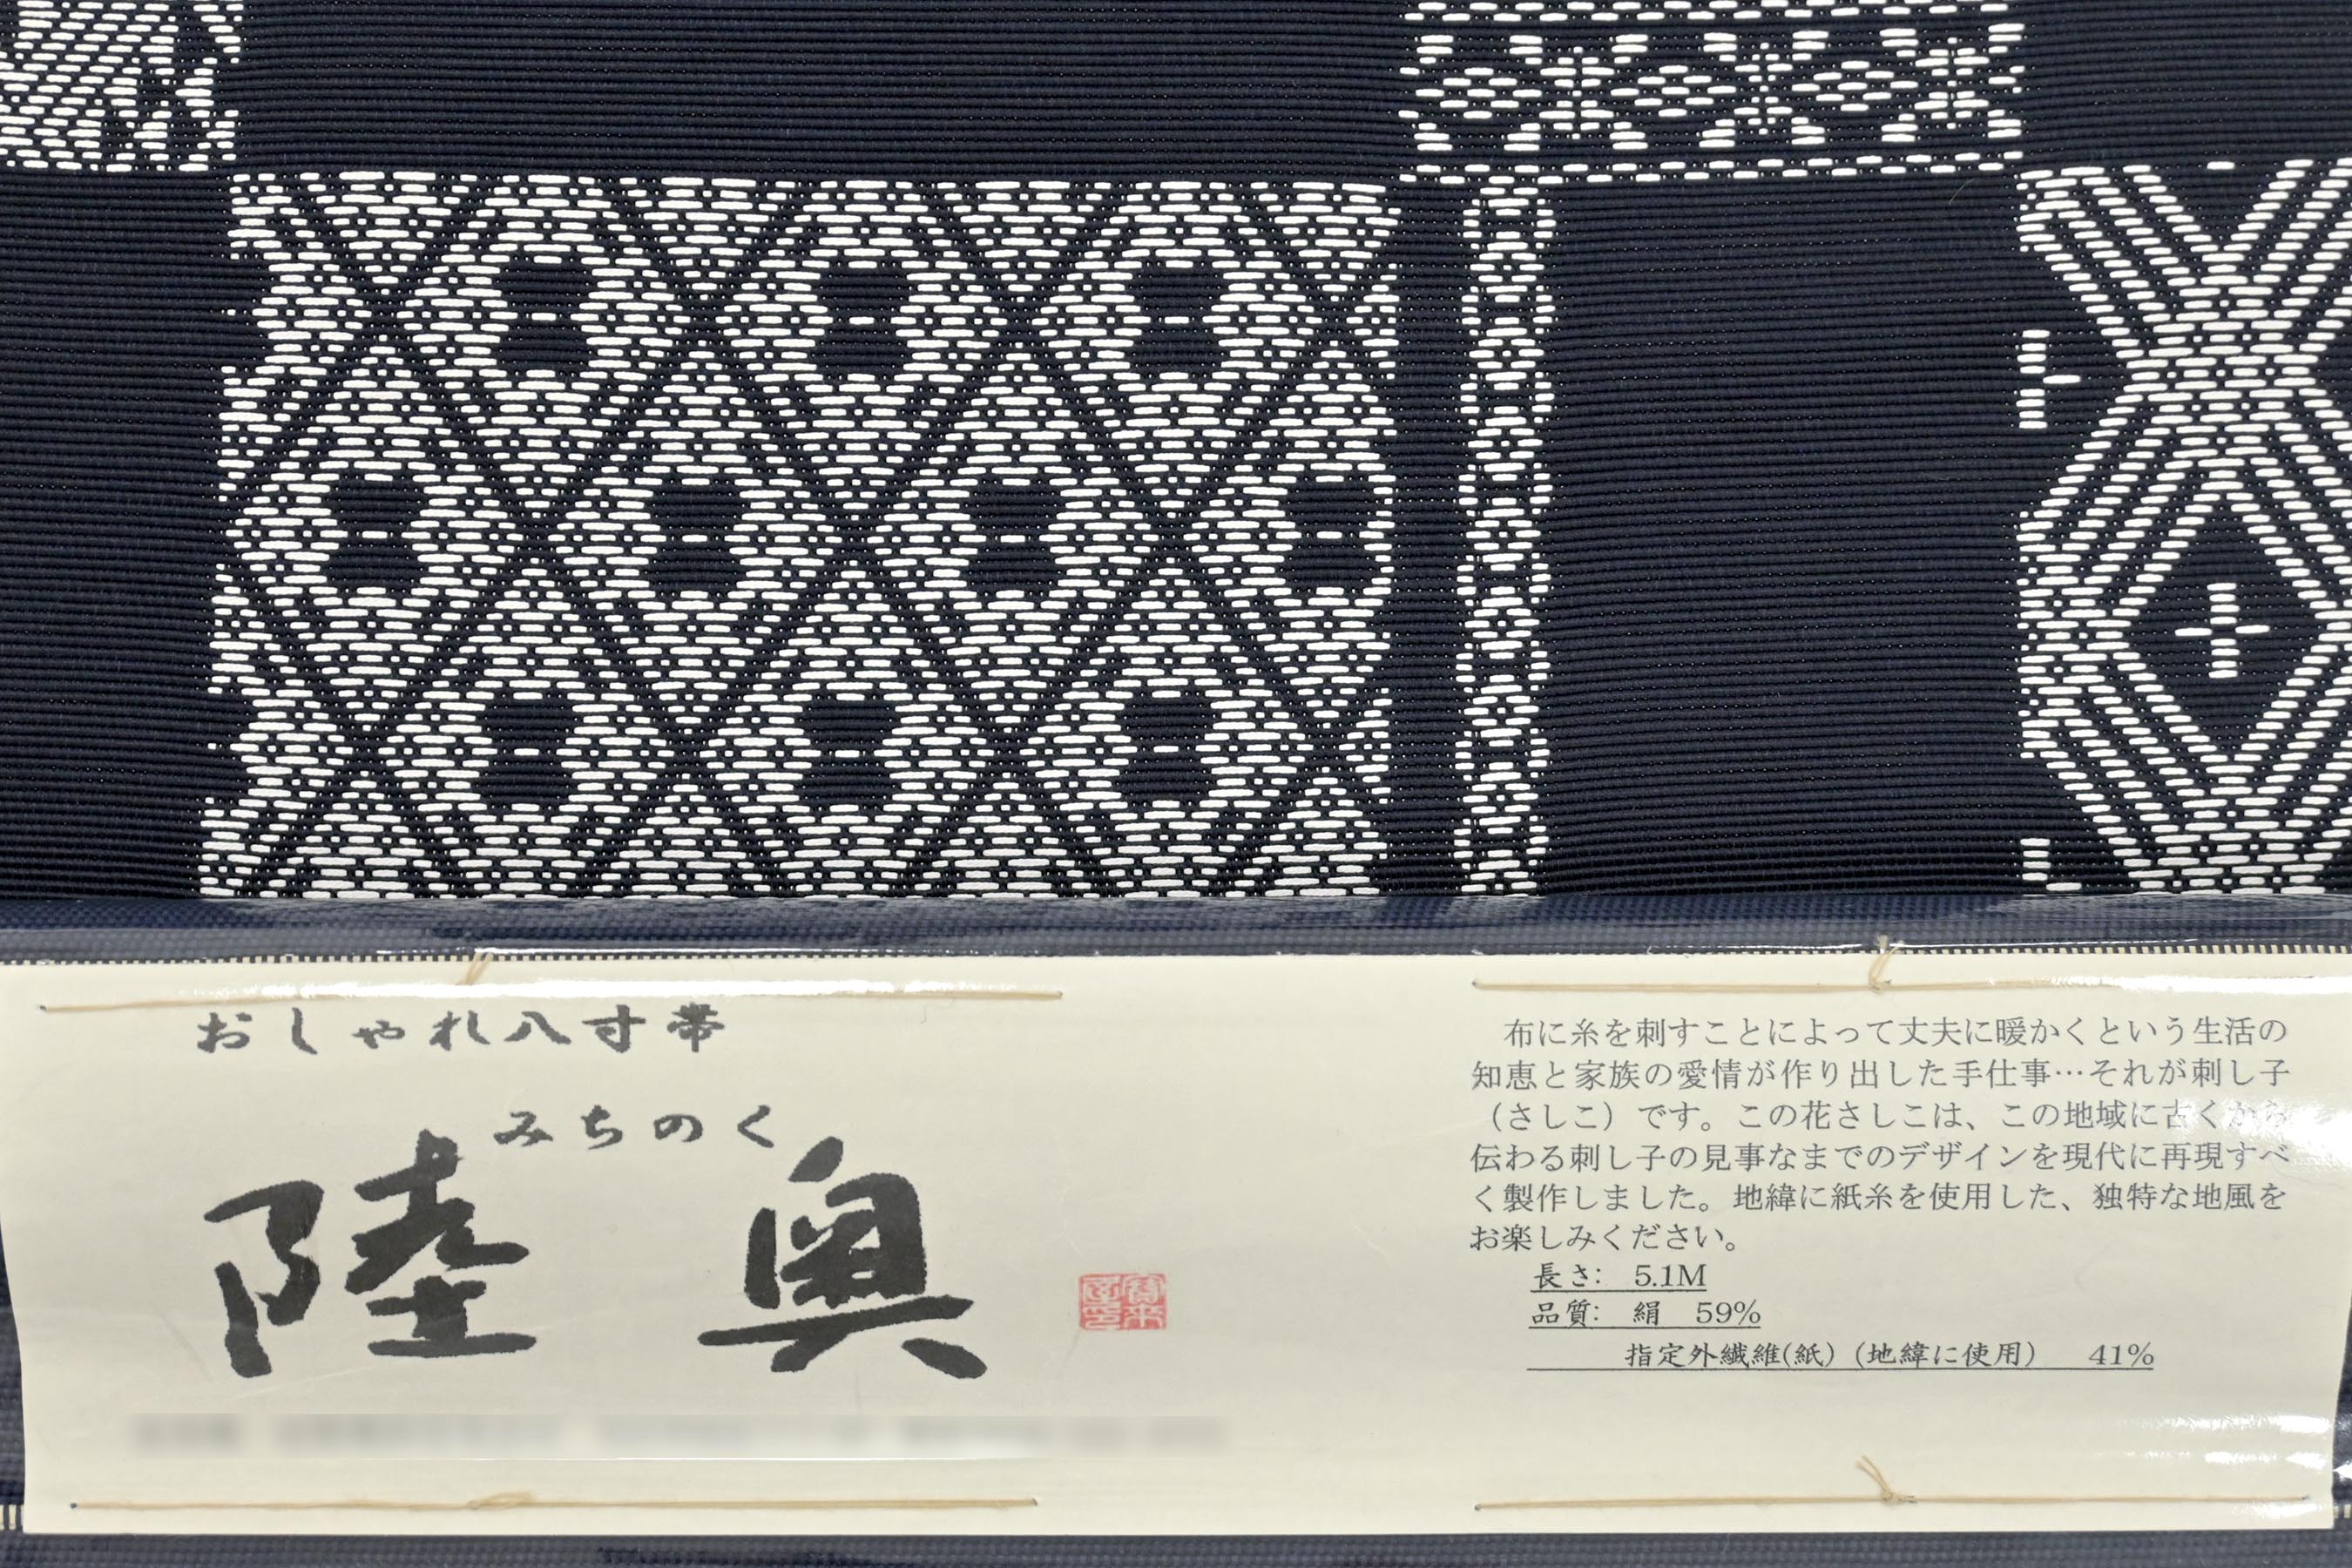 おしゃれ八寸帯
みちのく
陸奥
布に糸を刺すことによって丈夫に暖かくという生活の
知恵と家族の愛情が作り出した手仕事…それが刺し子
（さしこ）です。この花さしこは、この地域に古くから
伝わる刺し子の見事なまでのデザインを現代に再現すべ
く製作しました。地緯に紙糸を使用した、独特な地風を
お楽しみください。
長さ： 5.1M
品質： 絹 59%
指定外繊維(紙)（地緯に使用） 41%